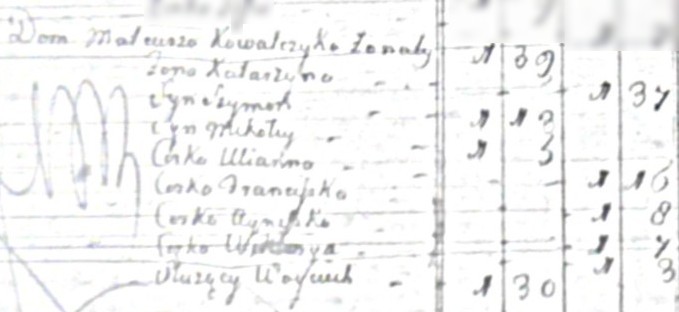 Dom Mateusza Kowalczyka Żonaty 1 39
Żona Katarzyna 1 37
Syn Szymon 1 13
Syn Mikołay 1 3
Corka Marianna 1 16
Corka Franciszka 1 8
Corka Agnyszka 1 7
Corka 1 3
Służący Woyciech 1 30